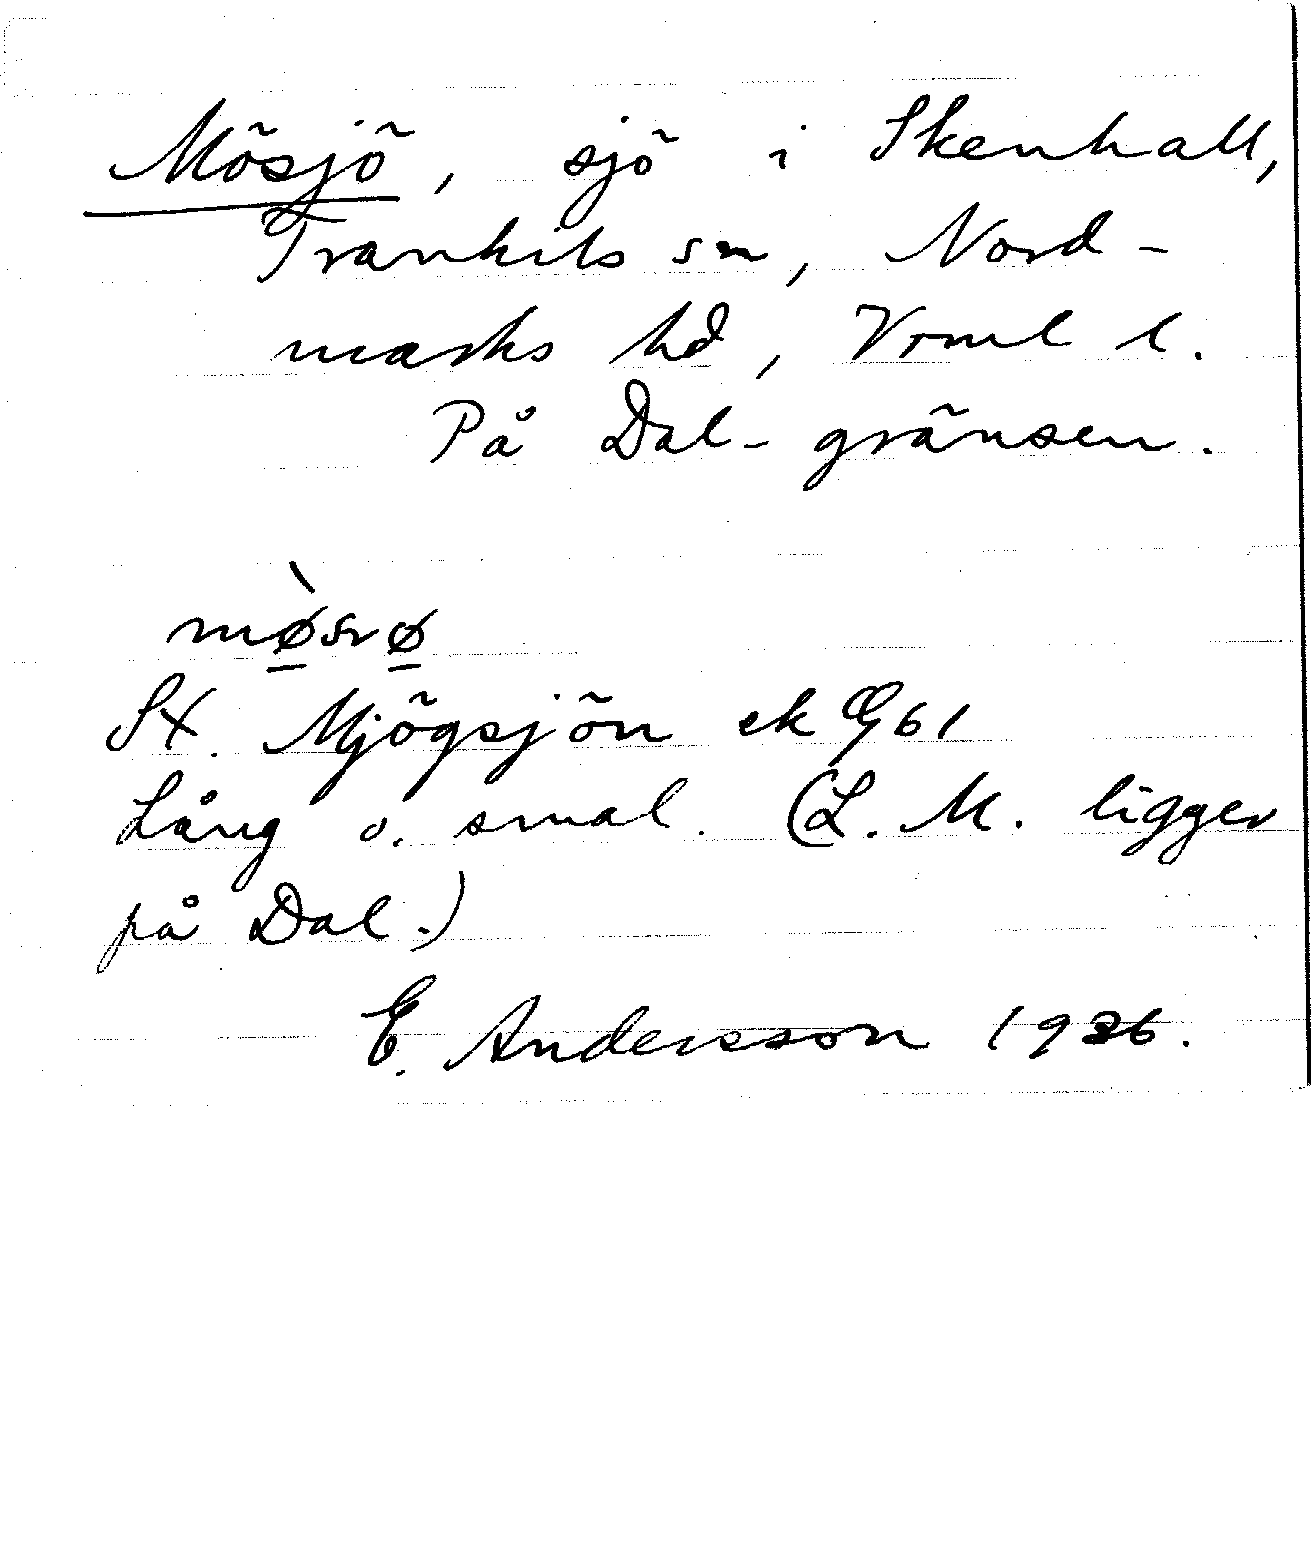 Mösjö, sjö i Skenhall,
Trankils sn, Nord-
marks hd, Vrml l.
På Dal-gränsen.
St. Mjögsjön ek 61
Lång o. smal. (L. M. ligger
på Dal.)
E. Andersson 1936.